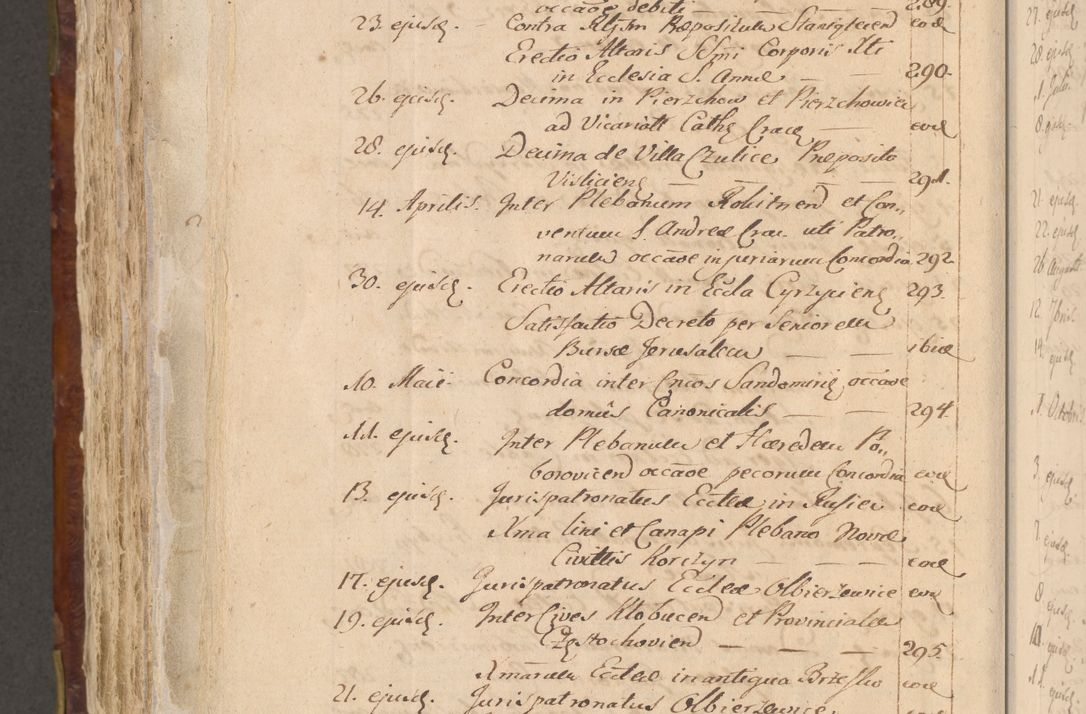 occãõe debiti — — 289.
23. ejusd. — Contra Altsm Præpositum Stanigtciend eod
Erectio Altaris SSmi Corporis Xti
in Ecclesia S. Annæ — — 290.
26. ejusd. Decima in Pierzchow et Pierzchowice
ad Vicariatt Cathq Cracq — eod
28. ejusd. Decima de Villa Czulice Præposito
Visliciens — — — — 291.
14. Aprilis. Inter Plebanum Rohitnend et Con„
ventum S. Andreæ Crac. uti Patro„
narum occãõe injuriarum Concordia 292
30. ejusd. Erectio Altaris in Eccla Cyrzyciens 293.
Satisfactio Decreto per Seniorem
Bursæ Jerusalem — — ibid
10. Maii. Concordia inter Cncos Sandomirien occãõe
domûs Canonicalis — — 294.
11. ejusd. Inter Plebanum et Hæredem Po„
borovicend occãõe pecorum Concordia eod
13. ejusd. Jurispatronatus Eccleæ in Rusiec eod
Xma lini et Canapi Plebano Novæ
Civittis Korczyn — — eod
17. ejusd. Jurispatronatus Eccleæ Olbierzowice eod
19. ejusd. Inter Cives Klobucen et Provincialem
Częstochoviend — — — — 295
Xmarum Eccleæ in antiqua Brzesko eod
21. ejusd. Jurispatronatus Olbierzowice
27. ejusd
28. ejusd
21. ejusd
22. ejusd
26. Augusti
12. 7bris
1. Octobris
3. ejusd